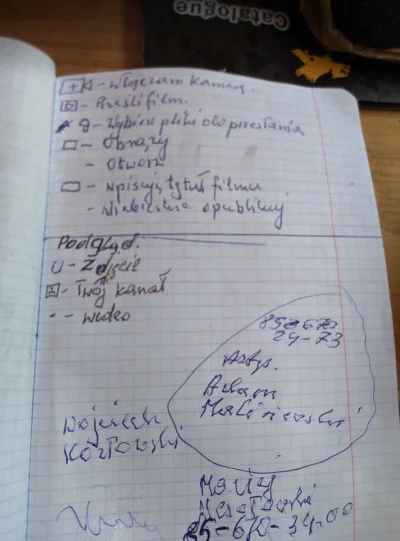 Catalogue
- Włączam kamerę.
- Prześlij film.
- Wybierz pliki do przesłania
- Obrazy
- Otwórz
- Wpisuję tytuł filmu
- Niebieskie opublikuj
Podgląd:
- Zdjęcie
- Twój kanał
- - wideo
24-73
Adam
Wojciech
Kozłowski
85-670-34-00